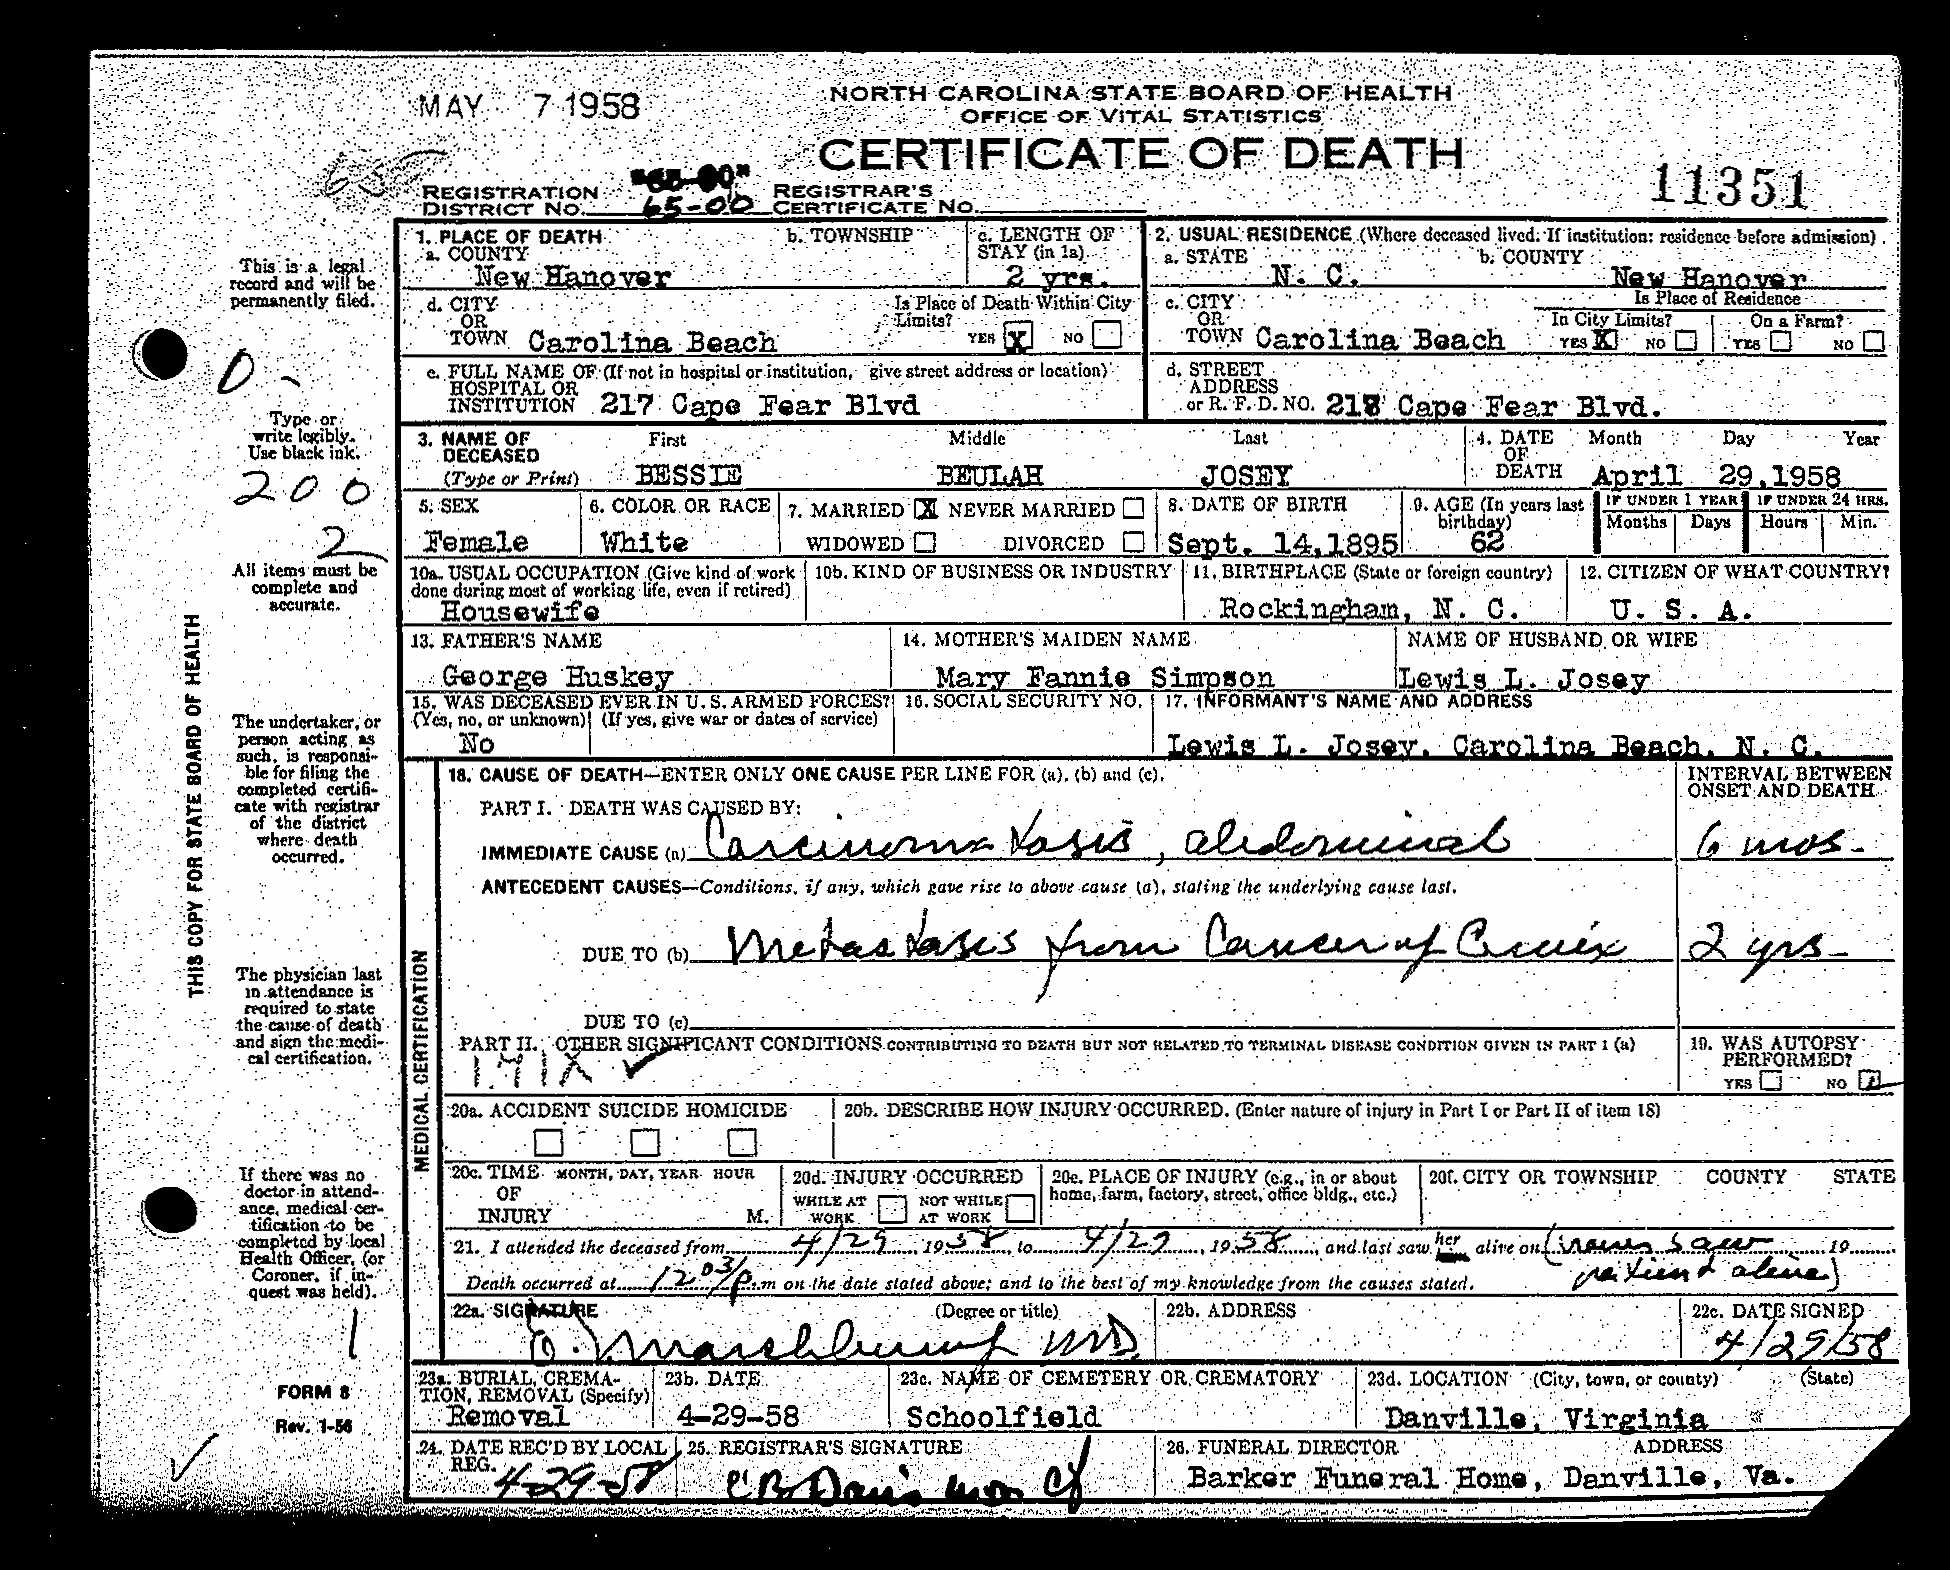 MAY 7 1958
NORTH CAROLINA STATE BOARD OF HEALTH
OFFICE OF VITAL STATISTICS
CERTIFICATE OF DEATH
11351
REGISTRATION DISTRICT NO. 65-00 REGISTRAR'S CERTIFICATE NO.
THIS COPY FOR STATE BOARD OF HEALTH
This is a legal
record and will be
permanently filed.
0 -
Type or
write legibly.
Use black ink.
200
2
All items must be
complete and
accurate.
The undertaker, or
person acting as
such, is responsi-
ble for filing the
completed certifi-
cate with registrar
of the district
where death
occurred.
The physician last
in attendance is
required to state
the cause of death
and sign the medi-
cal certification.
If there was no
doctor in attend-
ance, medical cer-
tification to be
completed by local
Health Officer, (or
Coroner, if in-
quest was held).
1
FORM 8
Rev. 1-56
1. PLACE OF DEATH
a. COUNTY New Hanover
b. TOWNSHIP
c. LENGTH OF STAY (in 1a) 2 yrs.
d. CITY OR TOWN Carolina Beach
Is Place of Death Within City Limits? YES X NO
e. FULL NAME OF (If not in hospital or institution, give street address or location)
HOSPITAL OR
INSTITUTION 217 Cape Fear Blvd
2. USUAL RESIDENCE (Where deceased lived. If institution: residence before admission)
a. STATE N. C.
b. COUNTY New Hanover
c. CITY OR TOWN Carolina Beach
Is Place of Residence
In City Limits? YES X NO
On a Farm? YES NO
d. STREET ADDRESS or R. F. D. NO. 217 Cape Fear Blvd.
3. NAME OF DECEASED (Type or Print)
First Middle Last
BESSIE BEULAH JOSEY
4. DATE OF DEATH Month Day Year
April 29,1958
5. SEX Female
6. COLOR OR RACE White
7. MARRIED X NEVER MARRIED
WIDOWED DIVORCED
8. DATE OF BIRTH Sept. 14,1895
9. AGE (In years last birthday) 62
IF UNDER 1 YEAR Months Days
IF UNDER 24 HRS. Hours Min.
10a. USUAL OCCUPATION (Give kind of work done during most of working life, even if retired) Housewife
10b. KIND OF BUSINESS OR INDUSTRY
11. BIRTHPLACE (State or foreign country) Rockingham, N. C.
12. CITIZEN OF WHAT COUNTRY? U. S. A.
13. FATHER'S NAME George Huskey
14. MOTHER'S MAIDEN NAME Mary Fannie Simpson
NAME OF HUSBAND OR WIFE Lewis L. Josey
15. WAS DECEASED EVER IN U. S. ARMED FORCES?
(Yes, no, or unknown) (If yes, give war or dates of service)
No
16. SOCIAL SECURITY NO.
17. INFORMANT'S NAME AND ADDRESS
Lewis L. Josey, Carolina Beach, N. C.
MEDICAL CERTIFICATION
18. CAUSE OF DEATH—ENTER ONLY ONE CAUSE PER LINE FOR (a), (b) and (c).
INTERVAL BETWEEN ONSET AND DEATH
PART I. DEATH WAS CAUSED BY:
IMMEDIATE CAUSE (a) Carcinomatosis, abdominal 6 mos.
ANTECEDENT CAUSES—Conditions, if any, which gave rise to above cause (a), stating the underlying cause last.
DUE TO (b) Metastases from Cancer of Cervix 2 yrs
DUE TO (c)
PART II. OTHER SIGNIFICANT CONDITIONS CONTRIBUTING TO DEATH BUT NOT RELATED TO TERMINAL DISEASE CONDITION GIVEN IN PART I (a)
171X
19. WAS AUTOPSY PERFORMED? YES NO
20a. ACCIDENT SUICIDE HOMICIDE
20b. DESCRIBE HOW INJURY OCCURRED. (Enter nature of injury in Part I or Part II of item 18)
20c. TIME OF INJURY MONTH, DAY, YEAR HOUR M.
20d. INJURY OCCURRED
WHILE AT WORK NOT WHILE AT WORK
20e. PLACE OF INJURY (e.g., in or about home, farm, factory, street, office bldg., etc.)
20f. CITY OR TOWNSHIP COUNTY STATE
21. I attended the deceased from 4/29, 1958, to 4/29, 1958, and last saw her alive on (never saw 19
patient alive)
Death occurred at 12 03/p.m on the date stated above; and to the best of my knowledge from the causes stated.
22a. SIGNATURE (Degree or title) MD
22b. ADDRESS
22c. DATE SIGNED 4/29/58
23a. BURIAL, CREMATION, REMOVAL (Specify) Removal
23b. DATE 4-29-58
23c. NAME OF CEMETERY OR CREMATORY Schoolfield
23d. LOCATION (City, town, or county) (State)
Danville, Virginia
24. DATE REC'D BY LOCAL REG. 4-29-58
25. REGISTRAR'S SIGNATURE
26. FUNERAL DIRECTOR ADDRESS
Barker Funeral Home, Danville, Va.